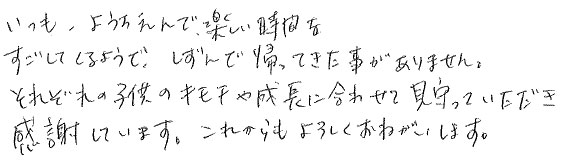 いつも、ようちえんで、楽しい時間を
すごしてくるようで、しずんで帰ってきた事がありません。
それぞれの子供のキモチや成長に合わせて見守っていただき
感謝しています。これからもよろしくおねがいします。